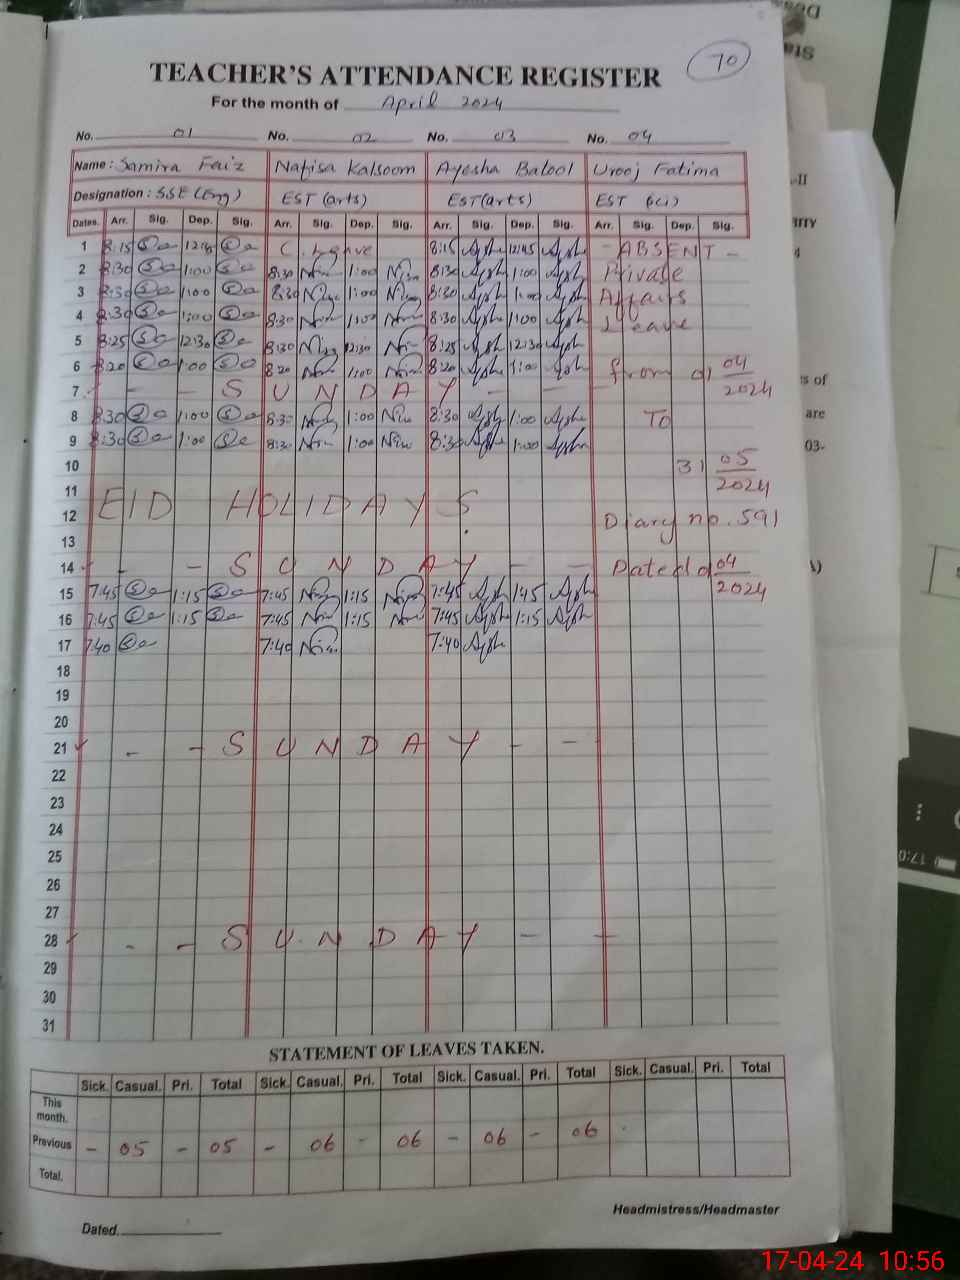 70
TEACHER'S ATTENDANCE REGISTER
For the month of April 2024
No. 01 No. 02 No. 03 No. 04
Name: Samira Faiz Nafisa Kalsoom Ayesha Batool Urooj Fatima
Designation: SSE (Eng) EST (arts) EST (arts) EST (sci)
Dates. Arr. Sig. Dep. Sig. Arr. Sig. Dep. Sig. Arr. Sig. Dep. Sig. Arr. Sig. Dep. Sig.
1 8:15 12:45 C. Leave 8:15 12:45 - ABSENT -
2 8:30 1:00 8:30 1:00 8:30 1:00 Private
3 8:30 1:00 8:30 1:00 8:30 1:00 Affairs
4 8:30 1:00 8:30 1:00 8:30 1:00 Leave
5 8:25 12:30 8:30 12:30 8:25 12:30
6 8:20 1:00 8:20 1:00 8:20 1:00 from 01 04
7 - - SUNDAY - - 2024
8 8:30 1:00 8:30 1:00 8:30 1:00 To
9 8:30 1:00 8:30 1:00 8:30 1:00
10 31 05
11 EID HOLIDAYS. 2024
12 Diary no. 591
13
14 - - SUNDAY - - Dated 04
15 7:45 1:15 7:45 1:15 7:45 1:45 2024
16 7:45 1:15 7:45 1:15 7:45 1:15
17 7:40 7:40 7:40
18
19
20
21 - - SUNDAY - -
22
23
24
25
26
27
28 - - SUNDAY - -
29
30
31
STATEMENT OF LEAVES TAKEN.
Sick. Casual. Pri. Total Sick. Casual. Pri. Total Sick. Casual. Pri. Total Sick. Casual. Pri. Total
This month.
Previous - 05 - 05 - 06 - 06 - 06 - 06
Total.
Headmistress/Headmaster
Dated.
17-04-24 10:56